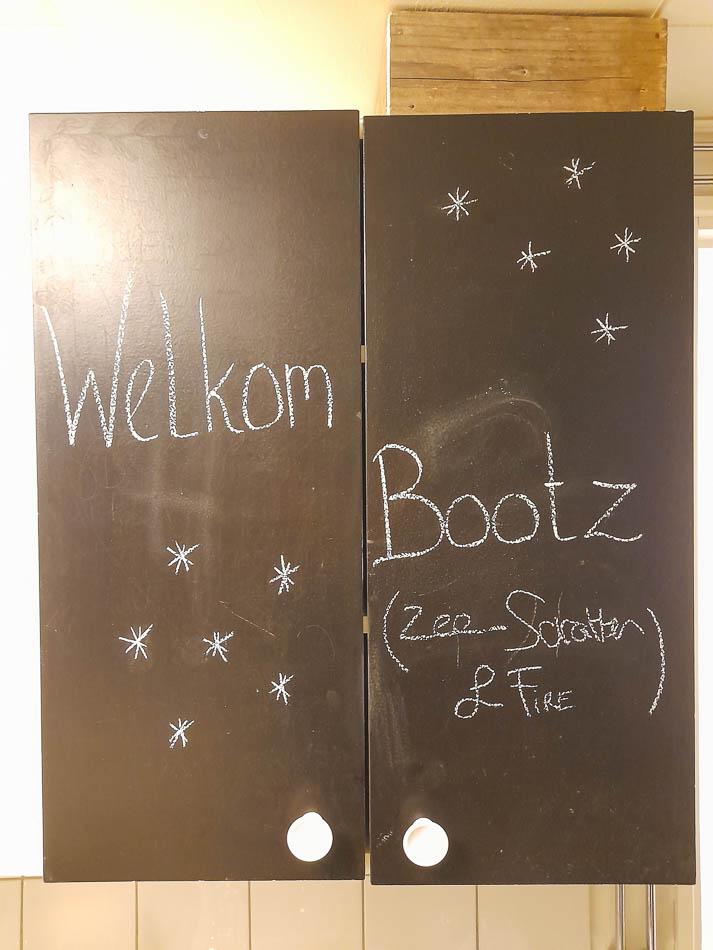 Welkom
Bootz
(Zee-Schatten
& FIRE)